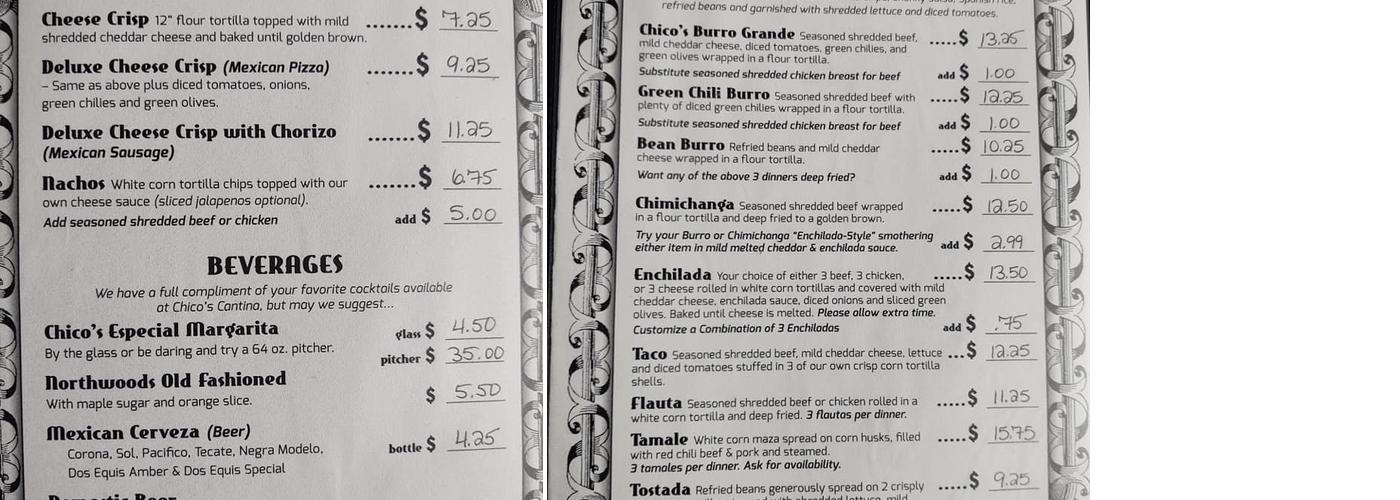 Cheese Crisp 12" flour tortilla topped with mild .......$ 7.25
shredded cheddar cheese and baked until golden brown.
Deluxe Cheese Crisp (Mexican Pizza) .......$ 9.25
– Same as above plus diced tomatoes, onions,
green chilies and green olives.
Deluxe Cheese Crisp with Chorizo .......$ 11.25
(Mexican Sausage)
Nachos White corn tortilla chips topped with our .......$ 6.75
own cheese sauce (sliced jalapenos optional).
Add seasoned shredded beef or chicken add $ 5.00
BEVERAGES
We have a full compliment of your favorite cocktails available
at Chico's Cantina, but may we suggest...
Chico's Especial Margarita glass $ 4.50
By the glass or be daring and try a 64 oz. pitcher. pitcher $ 35.00
Northwoods Old Fashioned $ 5.50
With maple sugar and orange slice.
Mexican Cerveza (Beer) bottle $ 4.25
Corona, Sol, Pacifico, Tecate, Negra Modelo,
Dos Equis Amber & Dos Equis Special
refried beans and garnished with shredded lettuce and diced tomatoes.
Chico's Burro Grande Seasoned shredded beef, .....$ 13.25
mild cheddar cheese, diced tomatoes, green chilies, and
green olives wrapped in a flour tortilla.
Substitute seasoned shredded chicken breast for beef add $ 1.00
Green Chili Burro Seasoned shredded beef with .....$ 12.25
plenty of diced green chilies wrapped in a flour tortilla.
Substitute seasoned shredded chicken breast for beef add $ 1.00
Bean Burro Refried beans and mild cheddar .....$ 10.25
cheese wrapped in a flour tortilla.
Want any of the above 3 dinners deep fried? add $ 1.00
Chimichanga Seasoned shredded beef wrapped .....$ 12.50
in a flour tortilla and deep fried to a golden brown.
Try your Burro or Chimichanga "Enchilada-Style" smothering
either item in mild melted cheddar & enchilada sauce. add $ 2.99
Enchilada Your choice of either 3 beef, 3 chicken, .....$ 13.50
or 3 cheese rolled in white corn tortillas and covered with mild
cheddar cheese, enchilada sauce, diced onions and sliced green
olives. Baked until cheese is melted. Please allow extra time.
Customize a Combination of 3 Enchiladas add $ .75
Taco Seasoned shredded beef, mild cheddar cheese, lettuce ...$ 12.25
and diced tomatoes stuffed in 3 of our own crisp corn tortilla
shells.
Flauta Seasoned shredded beef or chicken rolled in a .....$ 11.25
white corn tortilla and deep fried. 3 flautas per dinner.
Tamale White corn maza spread on corn husks, filled .....$ 15.75
with red chili beef & pork and steamed.
3 tamales per dinner. Ask for availability.
Tostada Refried beans generously spread on 2 crisply .....$ 9.25